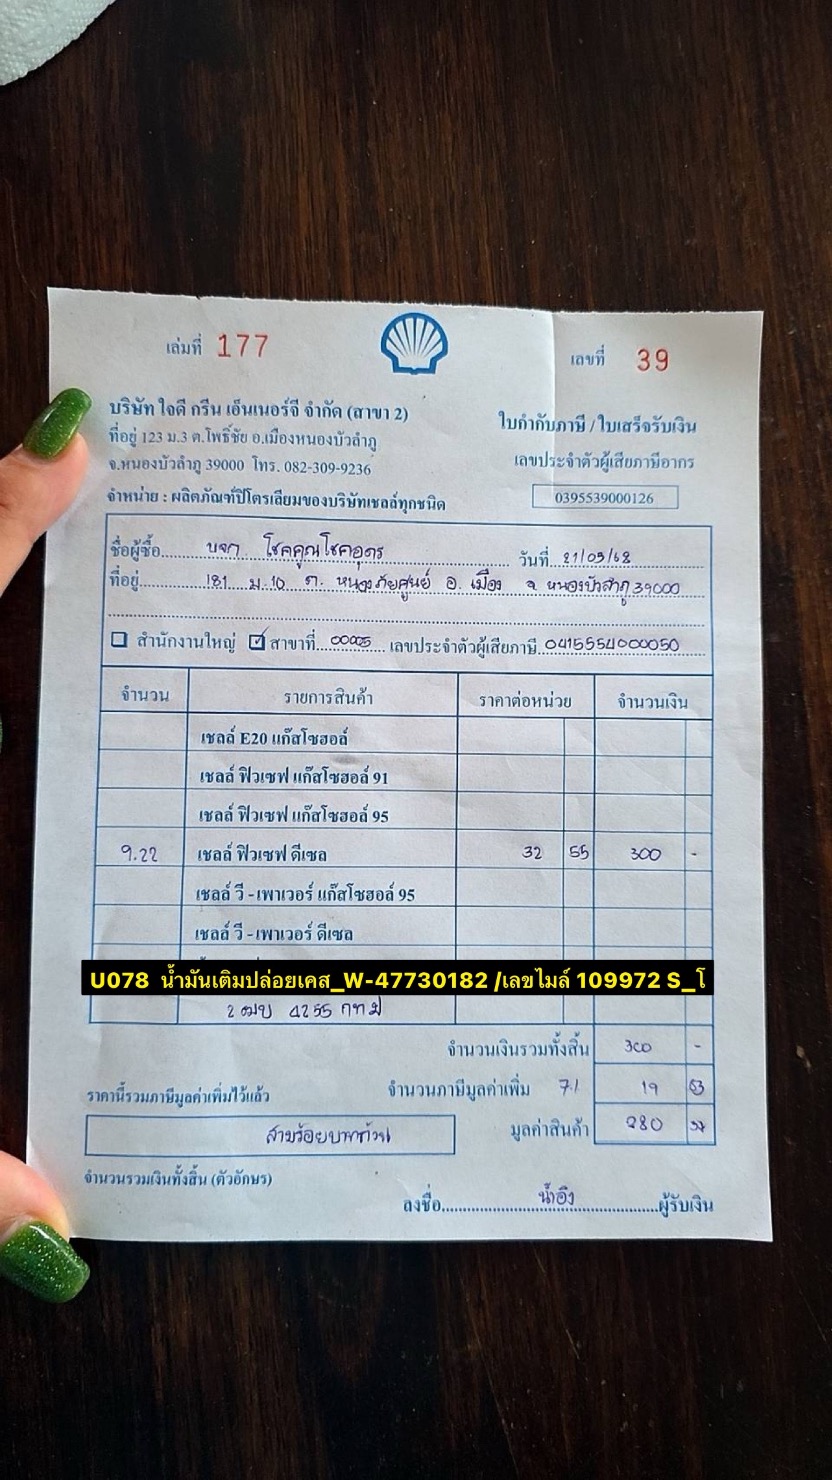 เล่มที่ 177
เลขที่ 39
บริษัท ใจดี กรีน เอ็นเนอร์จี จำกัด (สาขา 2)
ที่อยู่ 123 ม.3 ต.โพธิ์ชัย อ.เมืองหนองบัวลำภู
จ.หนองบัวลำภู 39000 โทร. 082-309-9236
จำหน่าย : ผลิตภัณฑ์ปิโตรเลียมของบริษัทเชลล์ทุกชนิด
ใบกำกับภาษี / ใบเสร็จรับเงิน
เลขประจำตัวผู้เสียภาษีอากร
0395539000126
ชื่อผู้ซื้อ บจก โชคคูณโชคอุดร วันที่ 21/05/68
ที่อยู่ 181 ม.10 ต. หนองภัยศูนย์ อ. เมือง จ. หนองบัวลำภู 39000
สำนักงานใหญ่ ☑ สาขาที่ 00005 เลขประจำตัวผู้เสียภาษี 0415554000050
จำนวน รายการสินค้า ราคาต่อหน่วย จำนวนเงิน
เชลล์ E20 แก๊สโซฮอล์
เชลล์ ฟิวเซฟ แก๊สโซฮอล์ 91
เชลล์ ฟิวเซฟ แก๊สโซฮอล์ 95
9.22 เชลล์ ฟิวเซฟ ดีเซล 32 55 300 -
เชลล์ วี - เพาเวอร์ แก๊สโซฮอล์ 95
เชลล์ วี - เพาเวอร์ ดีเซล
U078 น้ำมันเติมปล่อยเคส_W-47730182 /เลขไมล์ 109972 S_โ
2 ฒบ 4255 กทม
จำนวนเงินรวมทั้งสิ้น 300 -
ราคานี้รวมภาษีมูลค่าเพิ่มไว้แล้ว
จำนวนภาษีมูลค่าเพิ่ม 7% 19 63
สามร้อยบาทถ้วน
มูลค่าสินค้า 280 37
จำนวนรวมเงินทั้งสิ้น (ตัวอักษร)
ลงชื่อ น้ำอิง ผู้รับเงิน